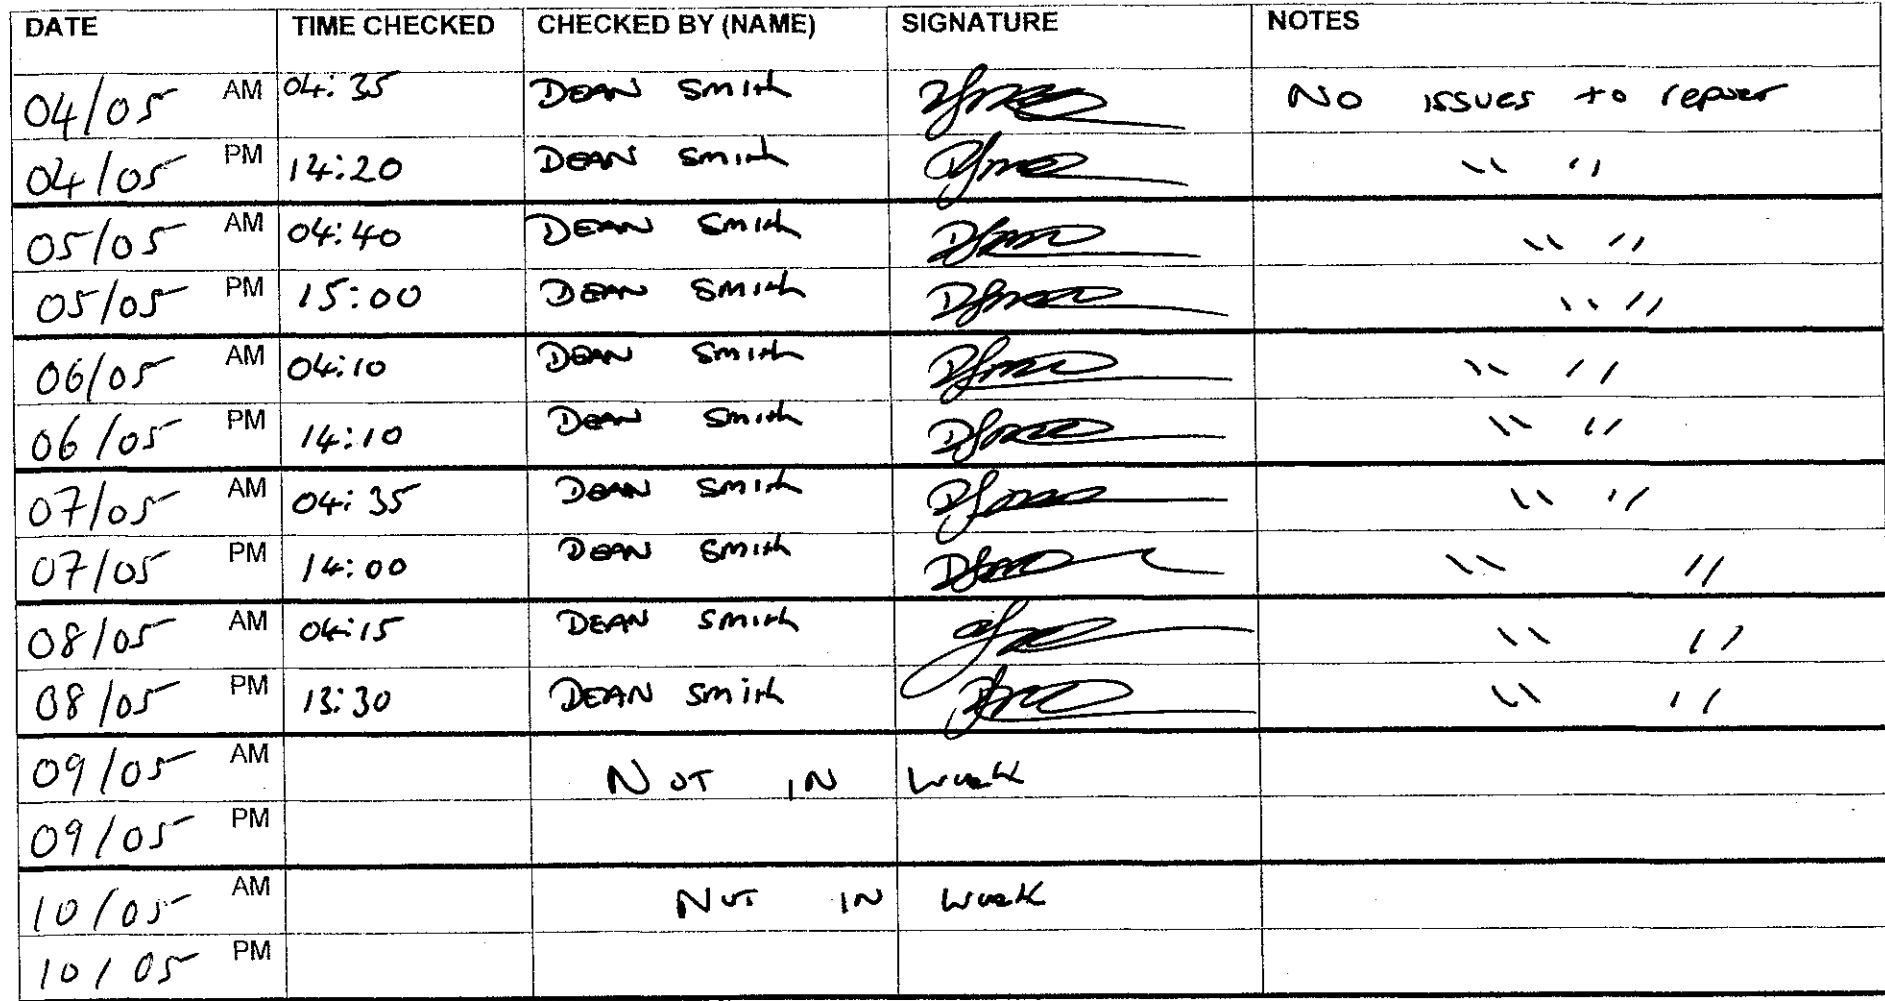 DATE TIME CHECKED CHECKED BY (NAME) SIGNATURE NOTES
04/05 AM 04:35 DEAN Smith No issues to report
04/05 PM 14:20 DEAN Smith " "
05/05 AM 04:40 DEAN Smith " "
05/05 PM 15:00 DEAN Smith " "
06/05 AM 04:10 DEAN Smith " "
06/05 PM 14:10 DEAN Smith " "
07/05 AM 04:35 DEAN Smith " "
07/05 PM 14:00 DEAN Smith " "
08/05 AM 04:15 DEAN Smith " "
08/05 PM 13:30 DEAN Smith " "
09/05 AM NOT IN Work
09/05 PM
10/05 AM NOT IN Work
10/05 PM